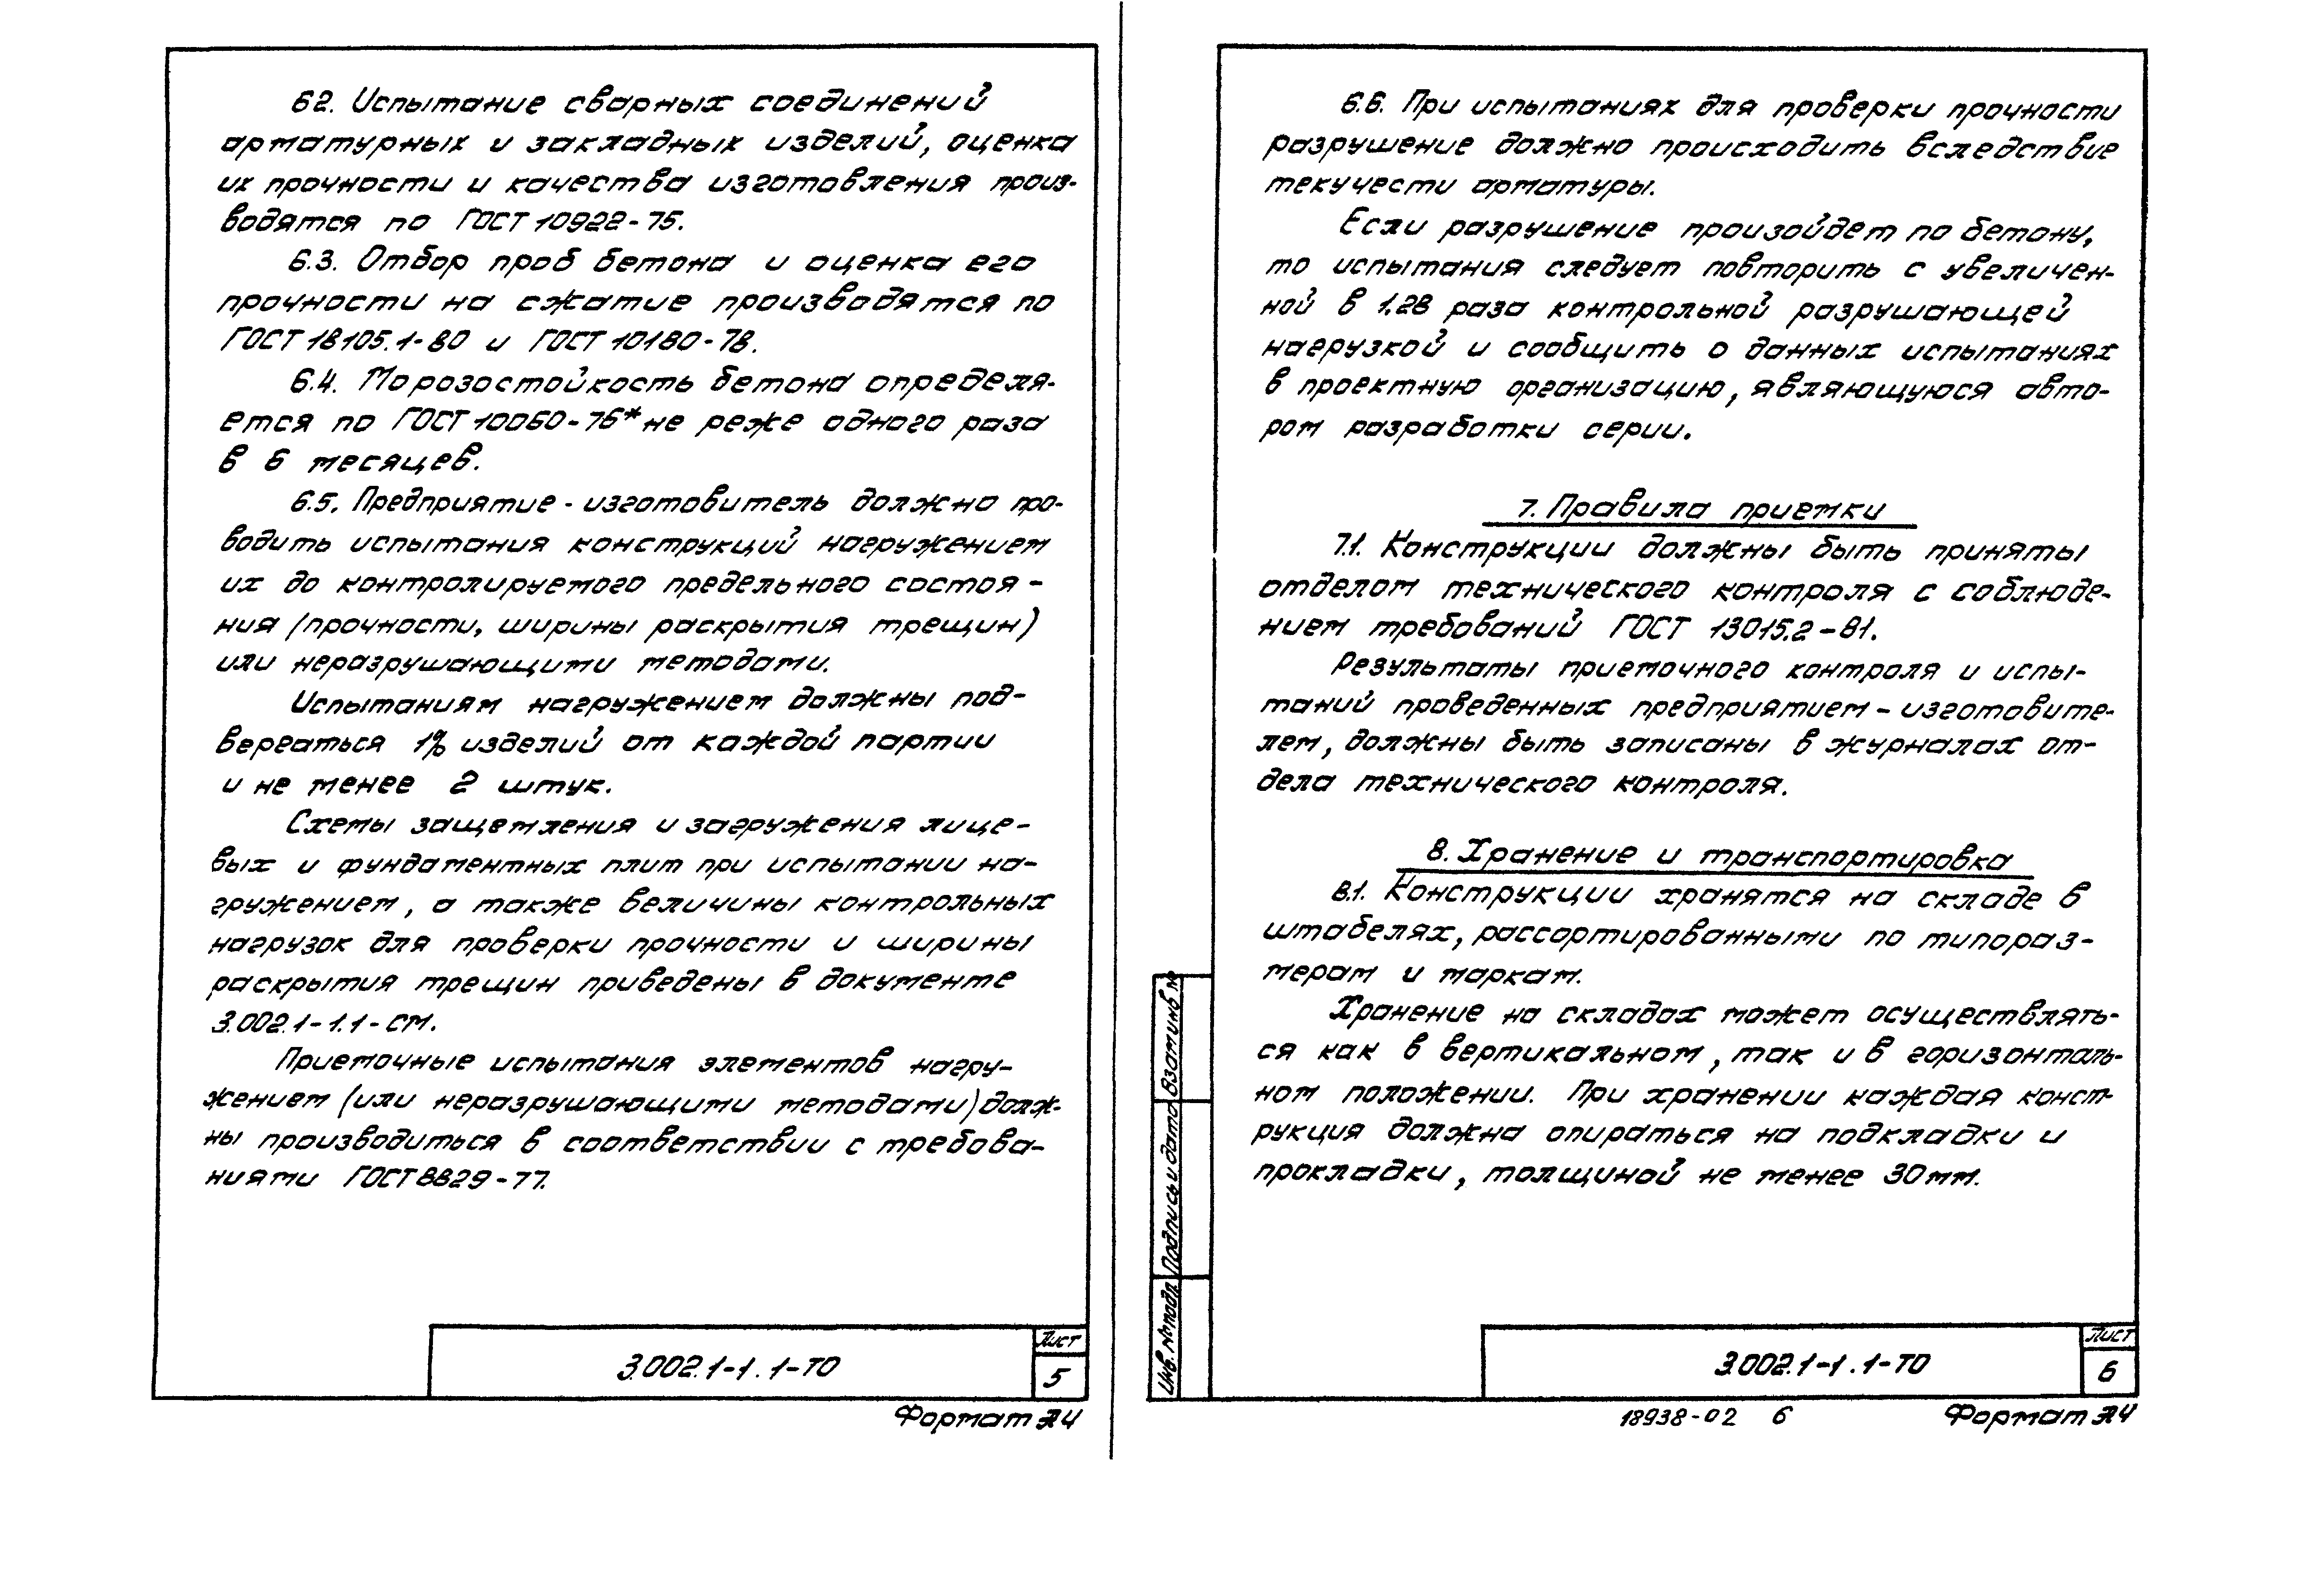 62. Испытание сварных соединений
арматурных и закладных изделий, оценка
их прочности и качества изготовления произ-
водятся по ГОСТ 10922-75.
6.3. Отбор проб бетона и оценка его
прочности на сжатие производятся по
ГОСТ 18105.1-80 и ГОСТ 10180-78.
6.4. Морозостойкость бетона определя-
ется по ГОСТ 10060-76* не реже одного раза
в 6 месяцев.
6.5. Предприятие-изготовитель должно про-
водить испытания конструкций нагружением
их до контролируемого предельного состоя-
ния (прочности, ширины раскрытия трещин)
или неразрушающими методами.
Испытаниям нагружением должны под-
вергаться 1% изделий от каждой партии
и не менее 2 штук.
Схемы защемления и загружения лице-
вых и фундаментных плит при испытании на-
гружением, а также величины контрольных
нагрузок для проверки прочности и ширины
раскрытия трещин приведены в документе
3.002.1-1.1-СМ.
Приемочные испытания элементов нагру-
жением (или неразрушающими методами) долж-
ны производиться в соответствии с требова-
ниями ГОСТ 8829-77.
3.002.1-1.1-ТО
Лист
5
Формат А4
6.6. При испытаниях для проверки прочности
разрушение должно происходить вследствие
текучести арматуры.
Если разрушение произойдет по бетону,
то испытания следует повторить с увеличен-
ной в 1,28 раза контрольной разрушающей
нагрузкой и сообщить о данных испытаниях
в проектную организацию, являющуюся авто-
ром разработки серии.
7. Правила приемки
7.1. Конструкции должны быть приняты
отделом технического контроля с соблюде-
нием требований ГОСТ 13015.2-81.
Результаты приемочного контроля и испы-
таний проведенных предприятием-изготовите-
лем, должны быть записаны в журналах от-
дела технического контроля.
8. Хранение и транспортировка
8.1. Конструкции хранятся на складе в
штабелях, рассортированными по типораз-
мерам и маркам.
Хранение на складах может осуществлять-
ся как в вертикальном, так и в горизонталь-
ном положении. При хранении каждая конст-
рукция должна опираться на подкладки и
прокладки, толщиной не менее 30 мм.
Взам инв №
Подпись и дата
Инв. № подл
3.002.1-1.1-ТО
Лист
6
18938-02 6
Формат А4